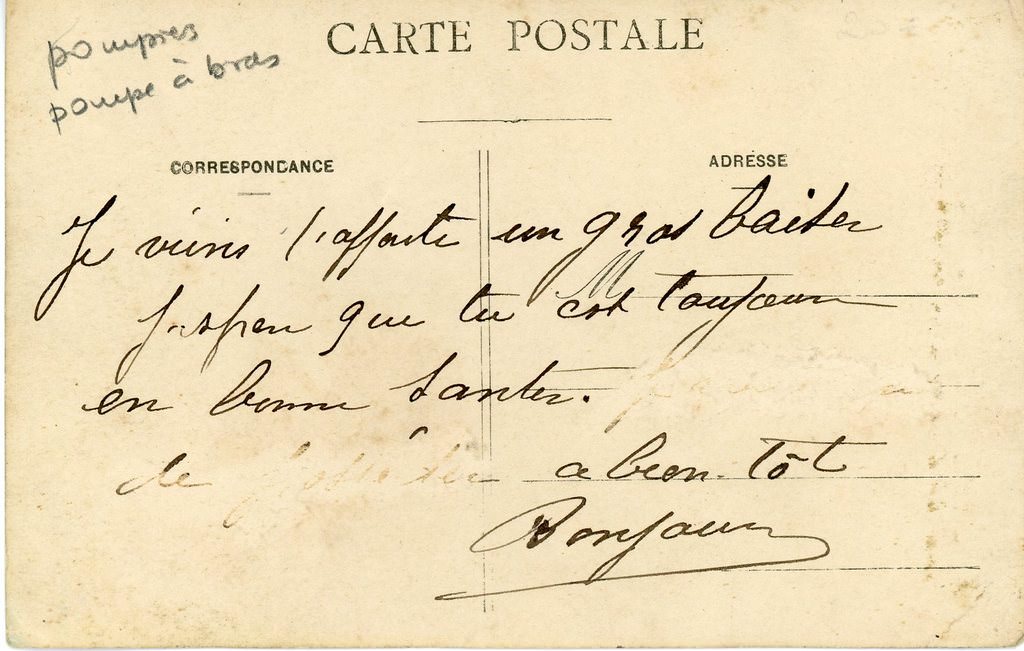 pompies
pompe à bras
CARTE POSTALE
CORRESPONDANCE
ADRESSE
Je viens t'apporte un gros baiser
j'esper que tu est toujour
en bonne santer.
de a bien-tôt
Bonjour